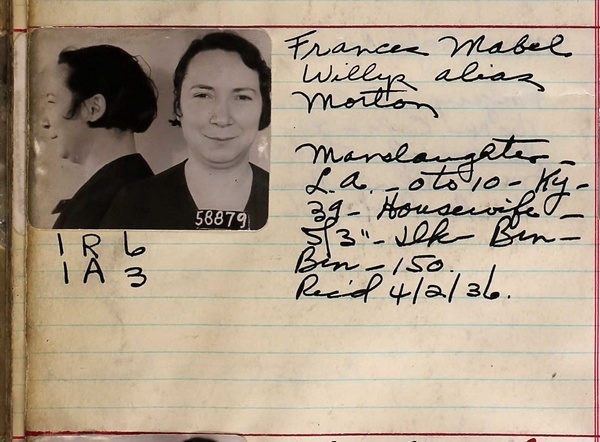 Frances Mabel
Willys alias
Morton
Manslaughter -
L.A. - 0 to 10 - Ky -
39 - Housewife -
5'3" - Dk - Brn -
Brn - 150.
Rec'd 4/2/36.
58879
1 R 6
1 A 3